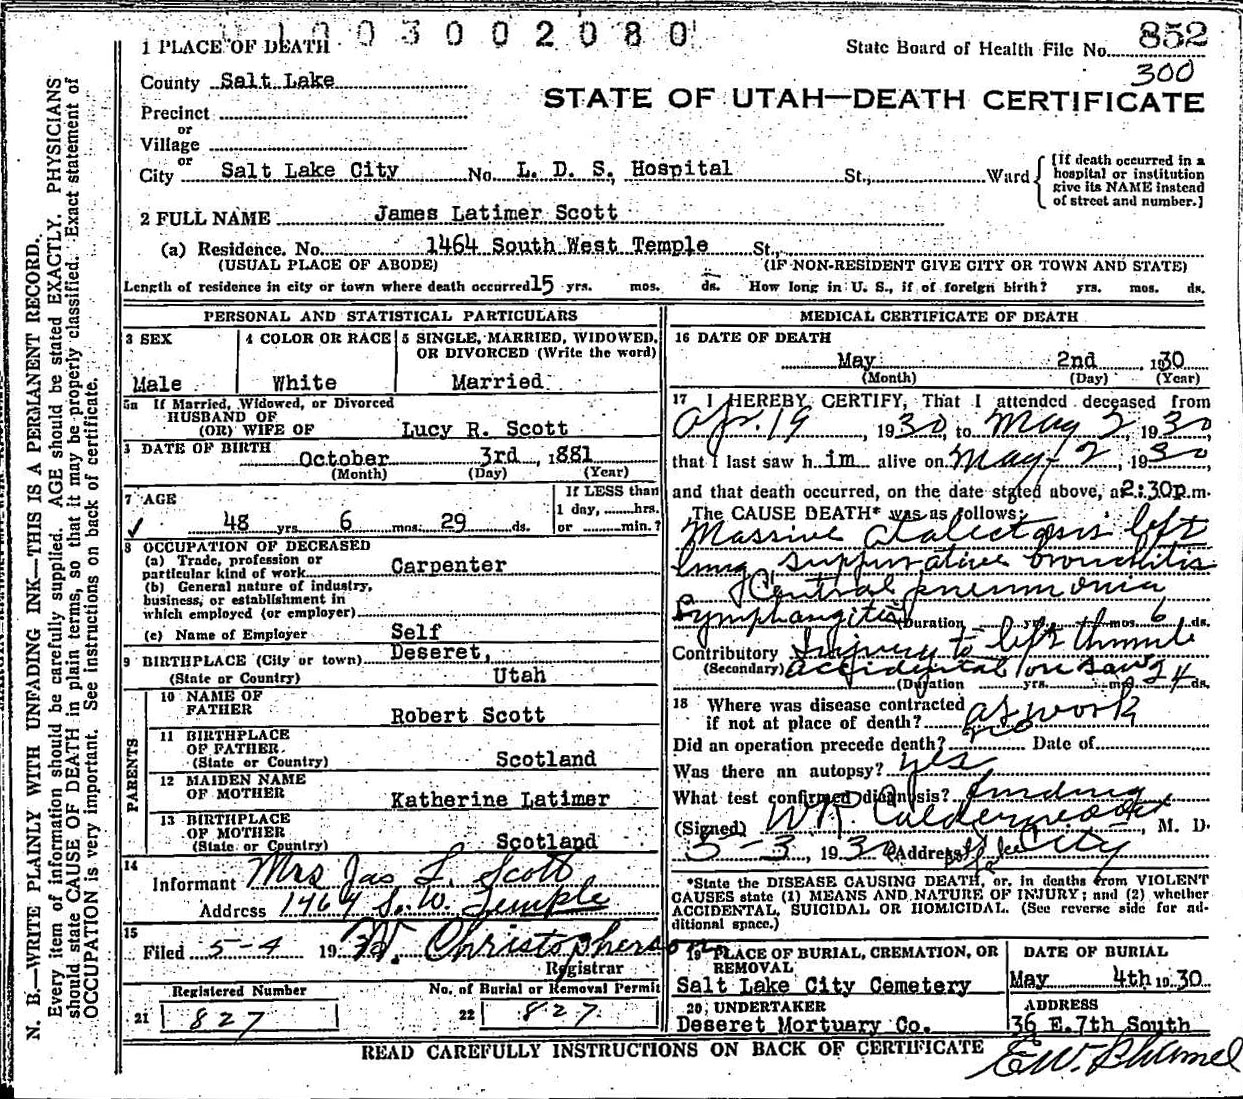 1003002080
1 PLACE OF DEATH
State Board of Health File No. 852
300
County Salt Lake
STATE OF UTAH—DEATH CERTIFICATE
Precinct
or
Village
or
City Salt Lake City No. L. D. S. Hospital St., Ward
[If death occurred in a
hospital or institution
give its NAME instead
of street and number.]
2 FULL NAME James Latimer Scott
(a) Residence. No. 1464 South West Temple St.,
(USUAL PLACE OF ABODE) (IF NON-RESIDENT GIVE CITY OR TOWN AND STATE)
Length of residence in city or town where death occurred 15 yrs. mos. ds. How long in U. S., if of foreign birth? yrs. mos. ds.
PERSONAL AND STATISTICAL PARTICULARS
3 SEX
Male
4 COLOR OR RACE
White
5 SINGLE, MARRIED, WIDOWED,
OR DIVORCED (Write the word)
Married
5a If Married, Widowed, or Divorced
HUSBAND OF
(OR) WIFE OF Lucy R. Scott
DATE OF BIRTH
October 3rd, 1881
(Month) (Day) (Year)
7 AGE
48 yrs 6 mos. 29 ds.
If LESS than
1 day, hrs.
or min.?
8 OCCUPATION OF DECEASED
(a) Trade, profession or
particular kind of work Carpenter
(b) General nature of industry,
business, or establishment in
which employed (or employer)
(c) Name of Employer Self
9 BIRTHPLACE (City or town) Deseret,
(State or Country) Utah
PARENTS
10 NAME OF
FATHER Robert Scott
11 BIRTHPLACE
OF FATHER
(State or Country) Scotland
12 MAIDEN NAME
OF MOTHER Katherine Latimer
13 BIRTHPLACE
OF MOTHER
(State or Country) Scotland
14
Informant Mrs Jas L. Scott
Address 1464 S. W. Temple
15
Filed 5-4 19 W. Christopherson
Registrar
Registered Number
21 827
No. of Burial or Removal Permit
22 827
MEDICAL CERTIFICATE OF DEATH
16 DATE OF DEATH
May 2nd 1930
(Month) (Day) (Year)
17 I HEREBY CERTIFY, That I attended deceased from
Apr. 19, 1930, to May 2, 1930,
that I last saw him alive on May 2, 1930,
and that death occurred, on the date stated above, at 2:30p.m.
The CAUSE DEATH* was as follows:
Massive atalectasis left
lung suppurative bronchitis
Central pneumonia
Lymphangitis (Duration yrs. mos. 6 ds.
Contributory Injury to left thumb
(Secondary) accidental on saw
(Duration yrs. mos. 24 ds.
18 Where was disease contracted
if not at place of death? at work
Did an operation precede death? no Date of
Was there an autopsy? yes
What test confirmed diagnosis? finding
(Signed) WR Calderwood, M. D.
5-3, 1930 (Address) City
*State the DISEASE CAUSING DEATH, or, in deaths from VIOLENT
CAUSES state (1) MEANS AND NATURE OF INJURY; and (2) whether
ACCIDENTAL, SUICIDAL OR HOMICIDAL. (See reverse side for ad-
ditional space.)
19 PLACE OF BURIAL, CREMATION, OR
REMOVAL
Salt Lake City Cemetery
DATE OF BURIAL
May 4th 1930
20 UNDERTAKER
Deseret Mortuary Co.
ADDRESS
36 E. 7th South
READ CAREFULLY INSTRUCTIONS ON BACK OF CERTIFICATE
N. B.—WRITE PLAINLY WITH UNFADING INK—THIS IS A PERMANENT RECORD.
Every item of information should be carefully supplied. AGE should be stated EXACTLY. PHYSICIANS
should state CAUSE OF DEATH in plain terms, so that it may be properly classified. Exact statement of
OCCUPATION is very important. See instructions on back of certificate.